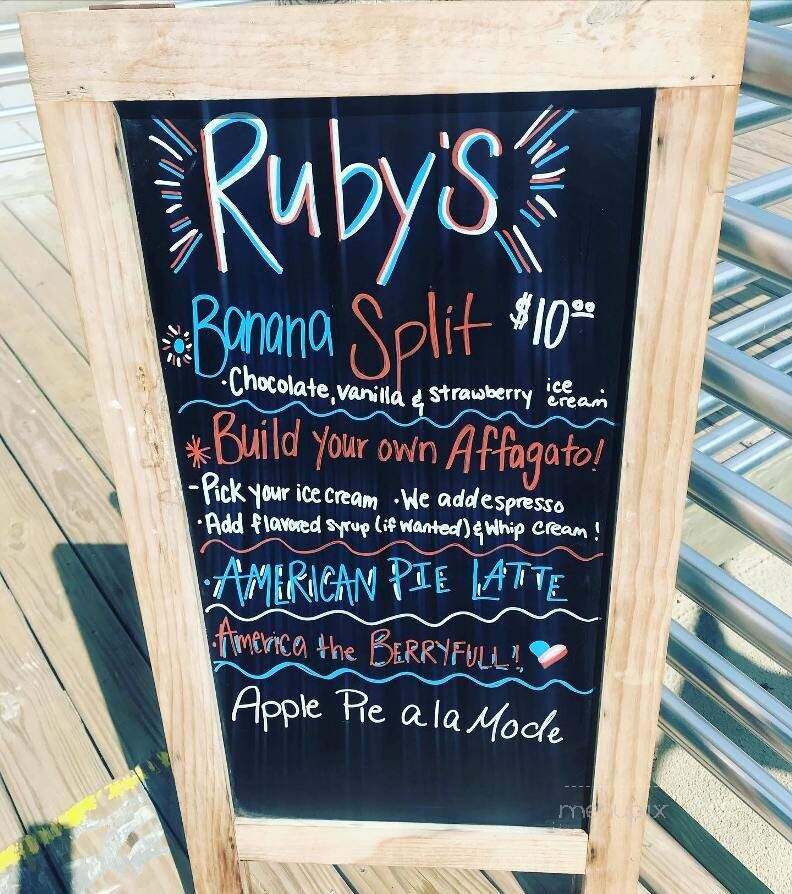 Ruby's
Banana Split $10.00
·Chocolate, vanilla & strawberry ice cream
*Build your own Affagato!
-Pick your ice cream ·We add espresso
·Add flavored syrup (if wanted) & Whip cream!
·AMERICAN PIE LATTE
·America the BERRYFULL!
Apple Pie a la Mode
menupix